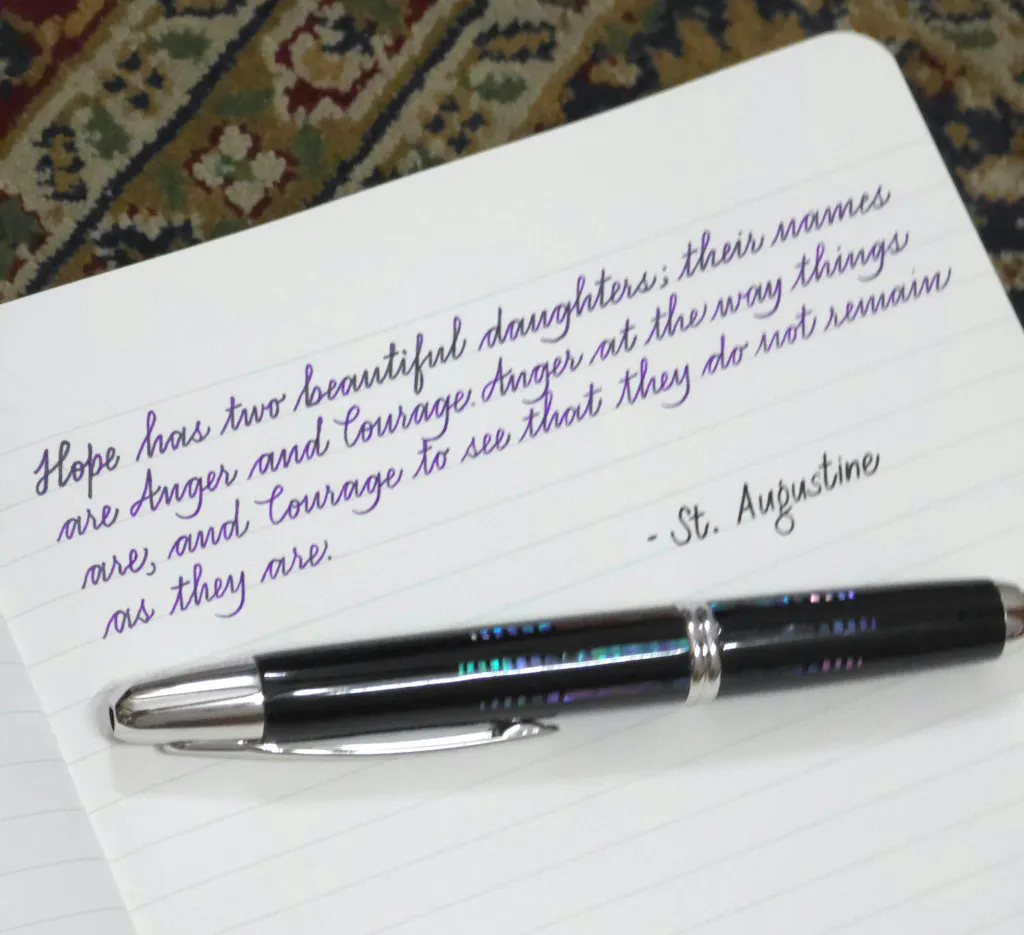 Hope has two beautiful daughters; their names
are Anger and Courage. Anger at the way things
are, and Courage to see that they do not remain
as they are.
- St. Augustine